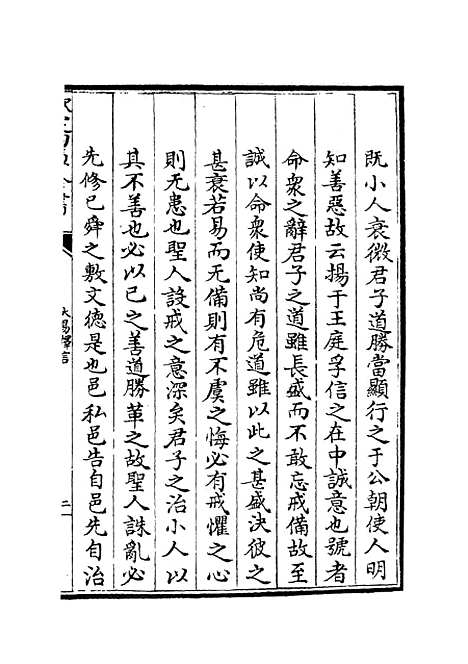 既小人衰微君子道勝當顯行之于公朝使人明
知善惡故云揚于王庭孚信之在中誠意也號者
命衆之辭君子之道雖長盛而不敢忘戒備故至
誠以命衆使知尚有危道雖以此之甚盛決彼之
甚衰若易而无備則有不虞之悔必有戒懼之心
則无患也聖人設戒之意深矣君子之治小人以
其不善也必以已之善道勝革之故聖人誅亂必
先修已舜之敷文德是也邑私邑告自邑先自治